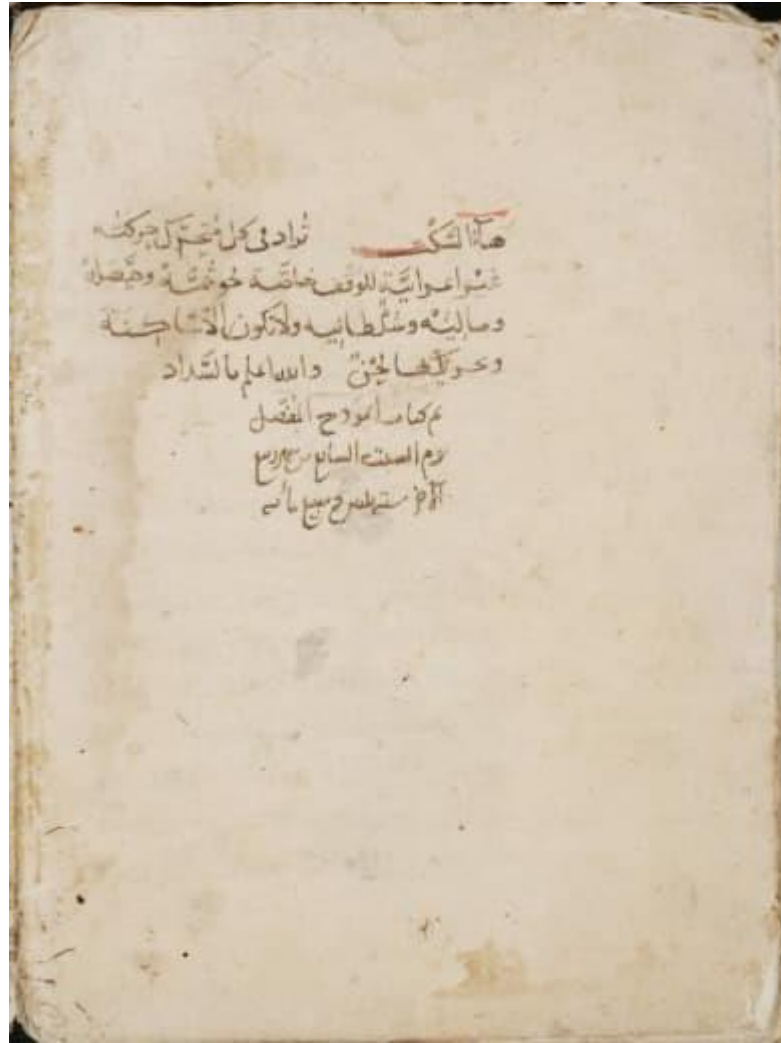 هاء السكت تزاد في كل متحركة حركته
غير اعرابية للوقف خاصة نحو ثمه وحيهله
وماليه وسلطانيه ولا تكون الا ساكنة
وتحريكها لحن والله اعلم بالسداد
تم كتاب انموذج المفصل
يوم السبت السابع من ربيع
الآخر سنة سبع مائه